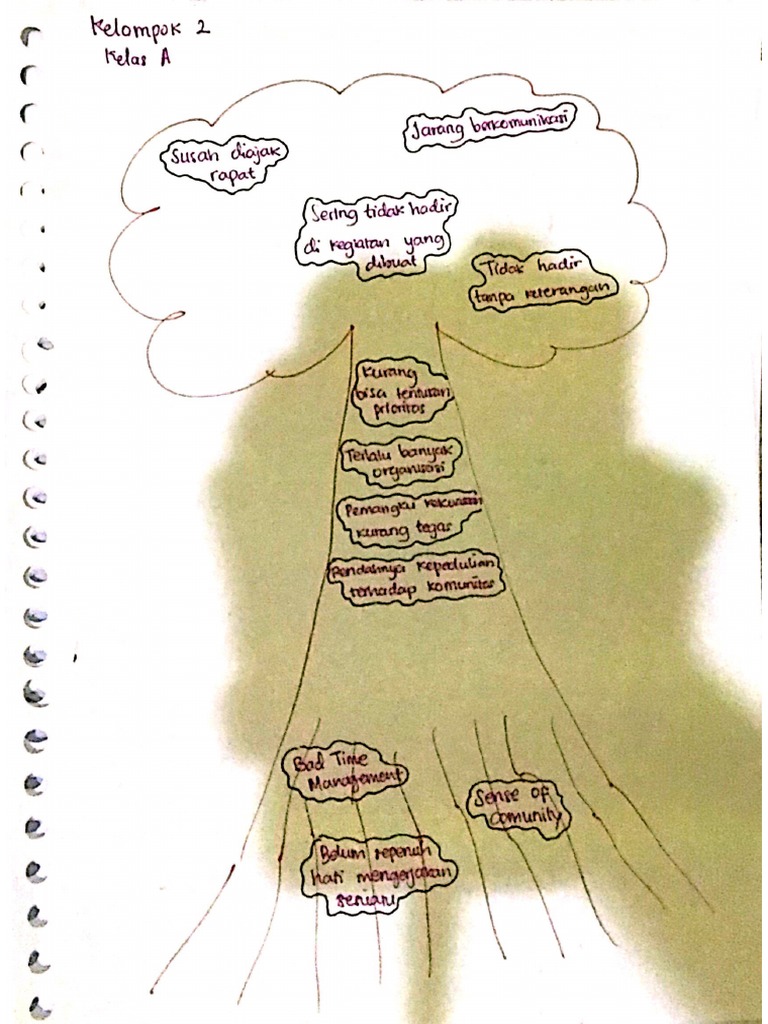 Kelompok 2
Kelas A
Susah diajak
rapat
Jarang berkomunikasi
Sering tidak hadir
di kegiatan yang
dibuat
Tidak hadir
tanpa keterangan
Kurang
bisa tentukan
prioritas
Terlalu banyak
organisasi
Pemangku kekuasaan
kurang tegas
Rendahnya kepedulian
terhadap komunitas
Bad Time
Management
Sense of
Comunity
Belum sepenuh
hati mengerjakan
sesuatu